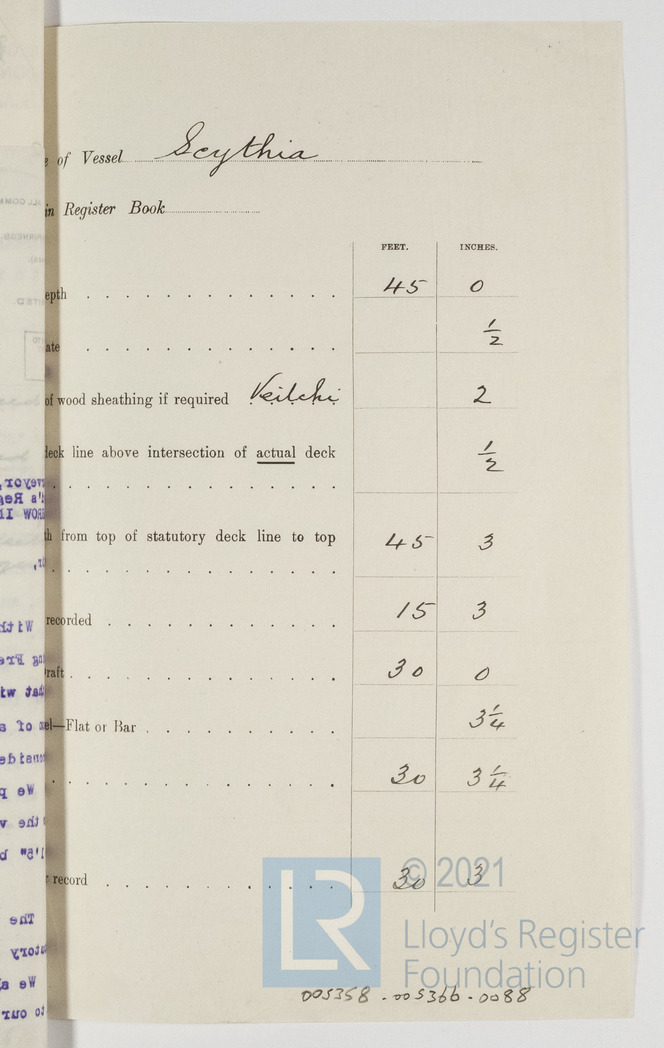 of Vessel Scythia
in Register Book
FEET. INCHES.
epth 45 0
ate ½
of wood sheathing if required Veitchi 2
deck line above intersection of actual deck ½
from top of statutory deck line to top 45 3
recorded 15 3
raft 30 0
el—Flat or Bar 3¼
30 3¼
record 30 3
© 2021
LR Lloyd's Register
Foundation
005358-005366-0088